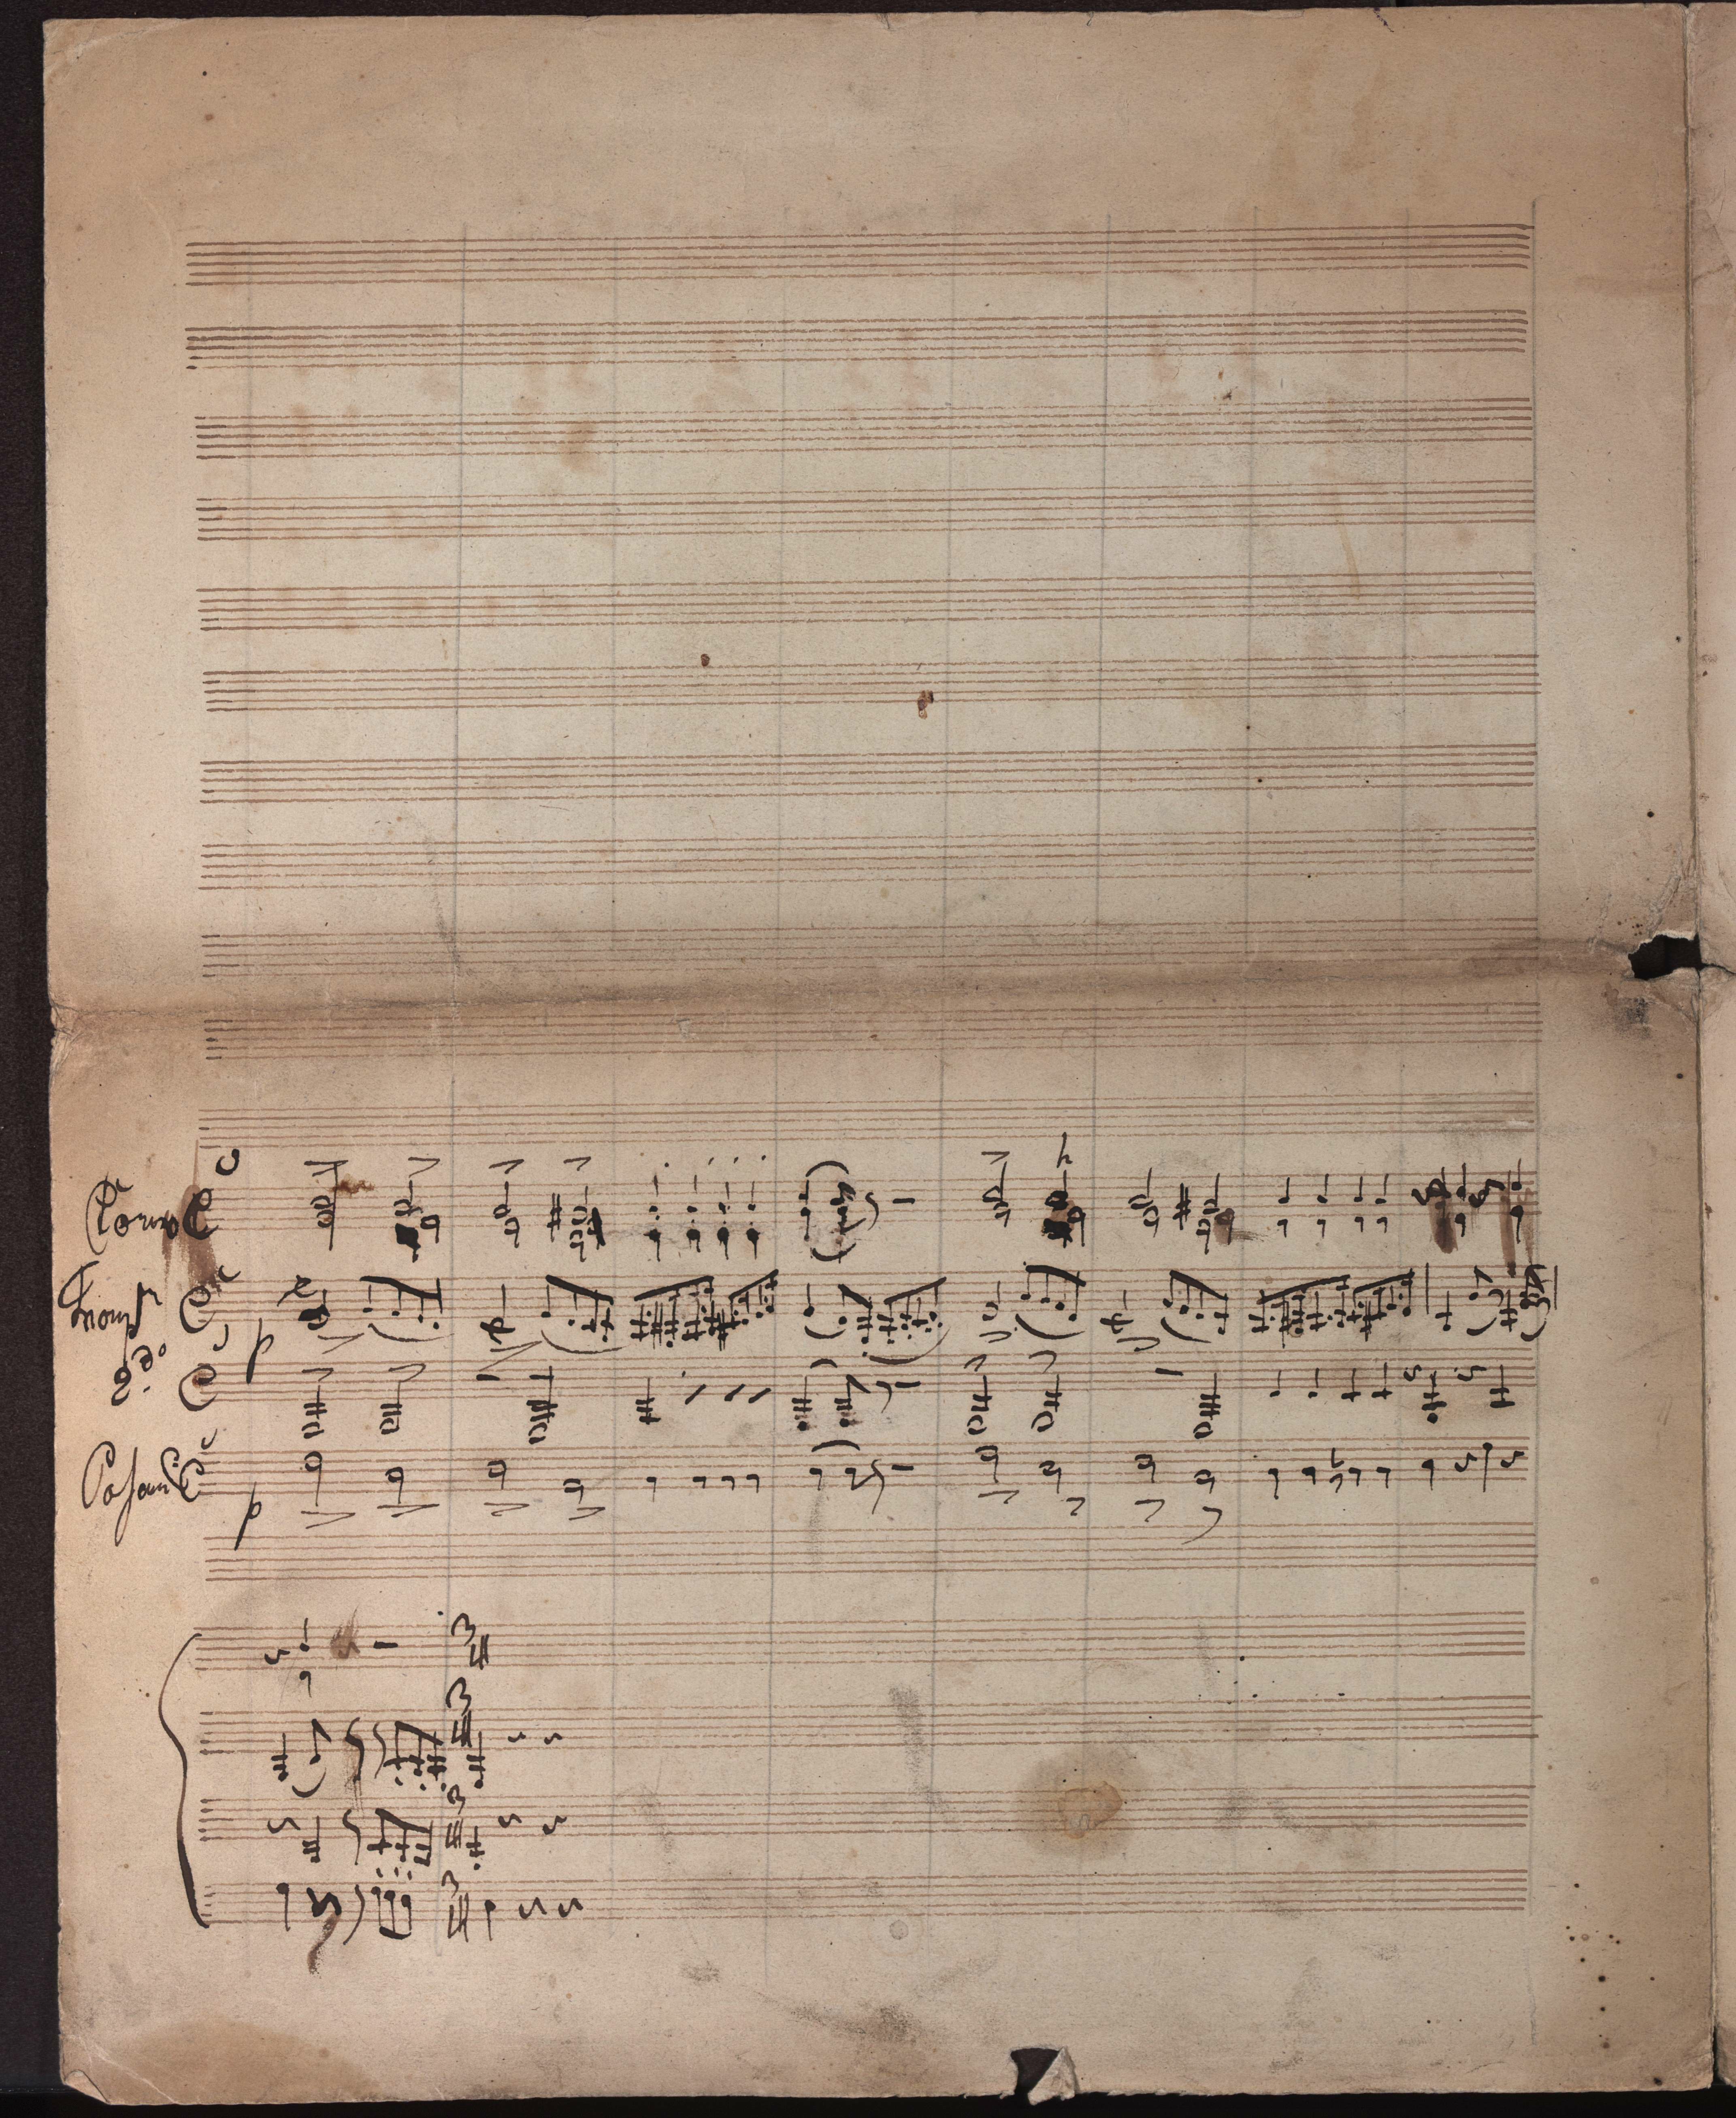 Corno
Tromp
p
2do
Posaun
p
3
3
3
3